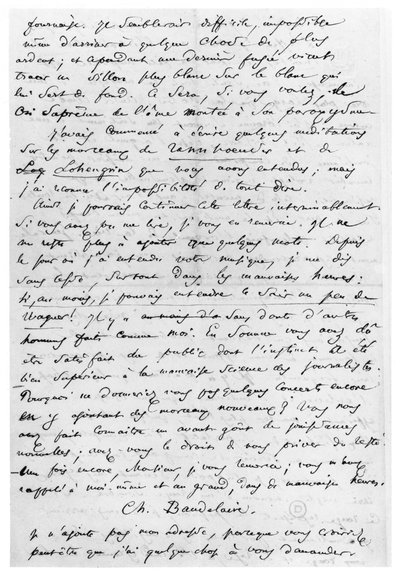 fournaise. Il semblerait difficile, impossible
même d'arriver à quelque chose de plus
ardent; et cependant une dernière fusée vient
tracer un sillon plus blanc sur le blanc qui
lui sert de fond. Ce sera, si vous voulez, le
cri suprême de l'âme montée à son paroxysme.
J'avais commencé à écrire quelques méditations
sur les morceaux de Tannhoeuser et de
Lohengrin que nous avons entendus; mais
j'ai reconnu l'impossibilité de tout dire.
Ainsi je pourrais continuer cette lettre interminablement.
Si vous avez pu me lire, je vous en remercie. Il ne
me reste plus à ajouter que quelques mots. Depuis
le jour où j'ai entendu votre musique, je me dis
sans cesse, surtout dans les mauvaises heures:
Si, au moins, je pouvais entendre ce soir un peu de
Wagner! Il y a sans doute d'autres
hommes faits comme moi. En somme vous avez dû
être satisfait du public dont l'instinct a été
bien supérieur à la mauvaise science des journalistes.
Pourquoi ne donneriez vous pas quelques concerts encore
en y ajoutant des morceaux nouveaux? Vous nous
avez fait connaître un avant-goût de jouissances
nouvelles; avez-vous le droit de nous priver du reste
- Une fois encore, Monsieur, je vous remercie; vous m'avez
rappelé à moi-même et au grand, dans de mauvaises heures.
Ch. Baudelaire.
Je n'ajoute pas mon adresse, parce que vous croiriez
peut-être que j'ai quelque chose à vous demander.